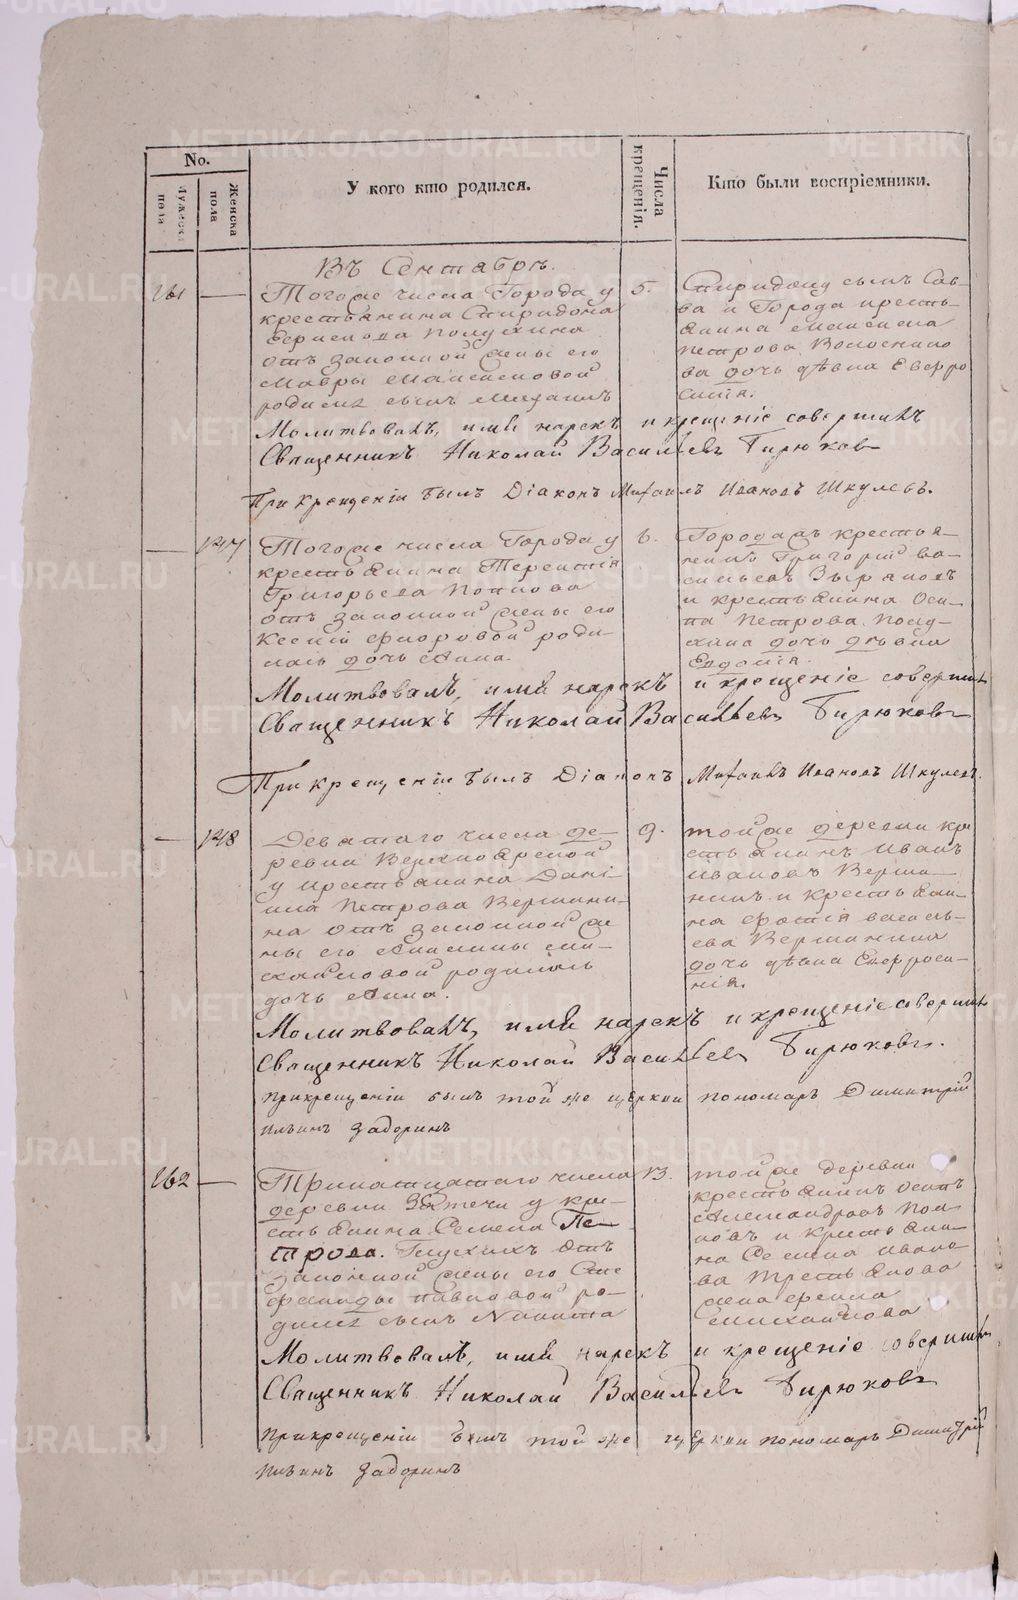 No.
Мужеска пола
Женска пола
У кого кто родился.
Числа крещенія.
Кто были воспріемники.
Въ Сентябрѣ.
161
Тогоже числа Города у
крестьянина Спиридона
Полухина
отъ законной жены его
Мавры Максимовой
родился сынъ Михаилъ
5.
Спиридону сынъ Сав-
ва и Города кресть-
янина Максима
Петрова
ва дочь дѣвка Евфро
синія.
Молитвовалъ, имя нарекъ и крещеніе совершилъ
Священникъ Николай Васильевъ Бирюковъ
При крещеніи былъ Діаконъ Михаилъ Ивановъ Шкулевъ.
147
Тогоже числа Города у
крестьянина Терентія
Григорьева Попова
отъ законной жены его
Ксеніи Флоровой роди-
лась дочь Анна.
6.
Города жъ крестья-
нинъ Григорій Ва-
сильевъ Зыряновъ
и крестьянина Оси-
па Петрова Полу-
хина дочь дѣвка
Евдокія.
Молитвовалъ, имя нарекъ и крещеніе совершилъ
Священникъ Николай Васильевъ Бирюковъ
При крещеніи былъ Діаконъ Михаилъ Ивановъ Шкулевъ.
148
Девятаго числа де-
ревни Верхноярской
у крестьянина Дані-
ила Петрова Вершини-
на отъ законной же
ны его Анисьи Ми-
хайловой родилась
дочь Анна.
9.
тойже деревни кре
стьянинъ Иванъ
Ивановъ Верши-
нинъ и крестьяни-
на Фотія Василь-
ева Вершинина
дочь дѣвка Евфроси-
нія.
Молитвовалъ, имя нарекъ и крещеніе совершилъ
Священникъ Николай Васильевъ Бирюковъ.
При крещеніи былъ той же церкви пономарь Димитрій
Ильинъ Задоринъ
162
Тринатцатаго числа
деревни у кре-
стьянина Семена Пе-
трова. Глухихъ отъ
законной жены его Сте
фаниды Павловой ро-
дился сынъ Никита
13.
тойже деревни
крестьянинъ Осипъ
Александровъ Поп-
повъ и крестьяни-
на Семена Ивано-
ва Третьякова
жена
Михайлова
Молитвовалъ, имя нарекъ и крещеніе совершилъ
Священникъ Николай Васильевъ Бирюковъ
При крещеніи былъ той же церкви пономарь Димитрій
Ильинъ Задоринъ
METRIKI.GASO-URAL.RU